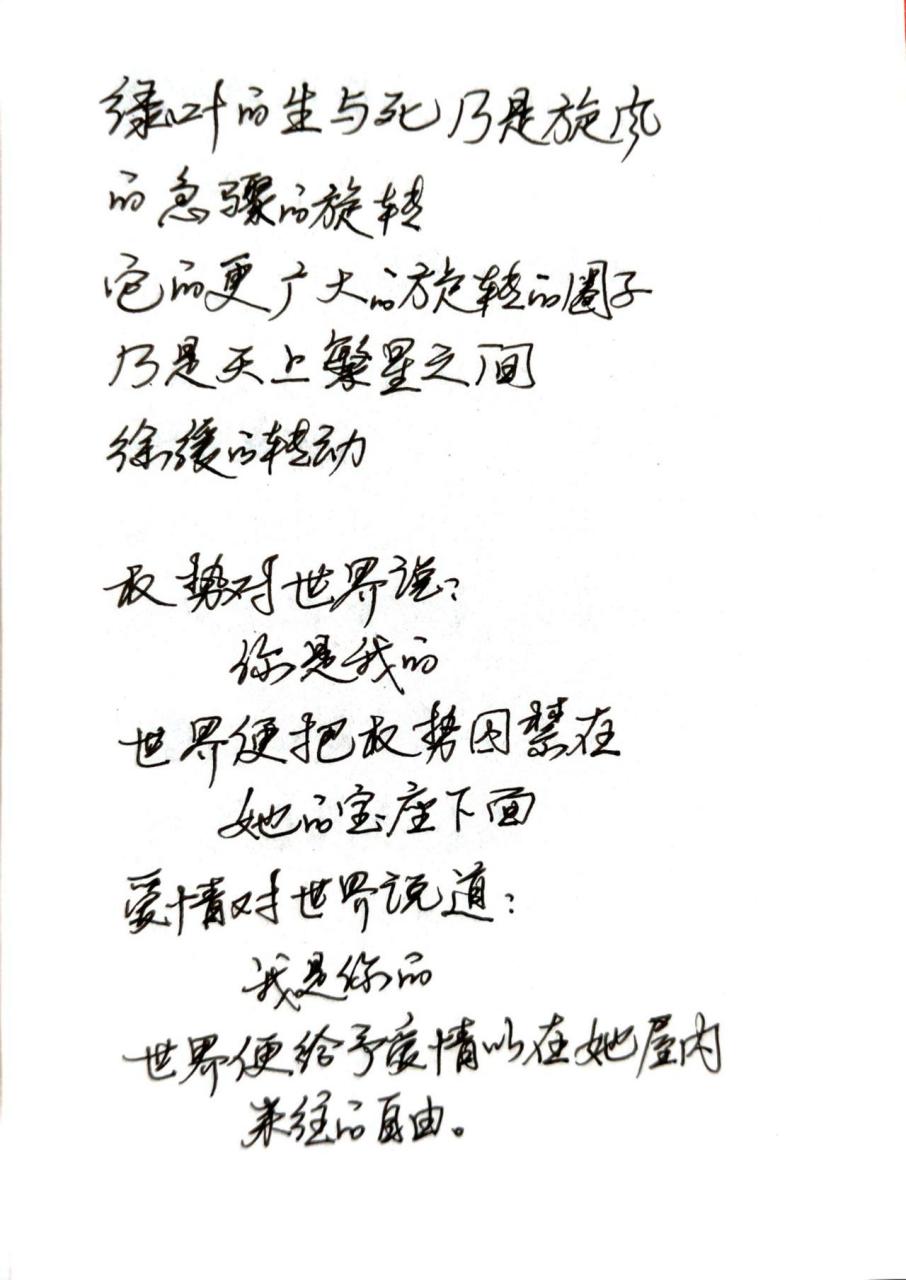 绿叶的生与死乃是旋风
的急骤的旋转
它的更广大的旋转的圈子
乃是天上繁星之间
徐缓的转动
权势对世界说：
你是我的
世界便把权势囚禁在
她的宝座下面
爱情对世界说道：
我是你的
世界便给予爱情以在她屋内
来往的自由。